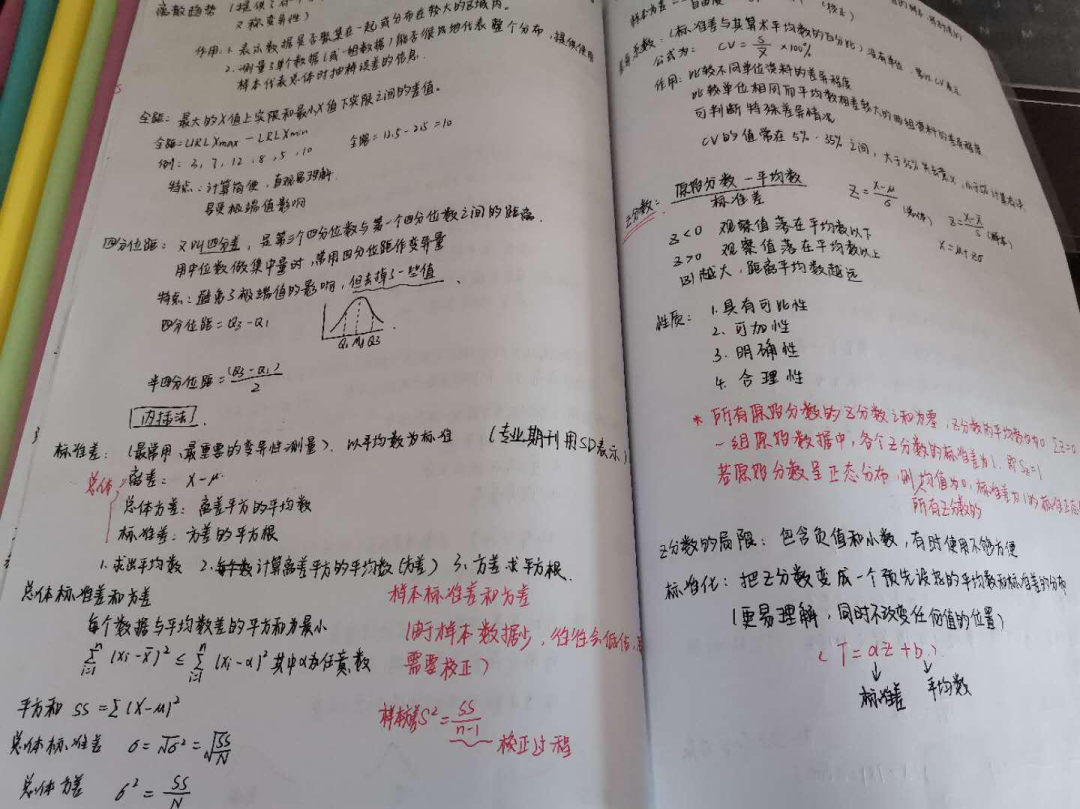 离散趋势
又称变异性)
作用: 1. 表示数据是否聚集在一起或分布在较大的区域内。
2. 测量了单个数据(或一组数据)能否很好地代表整个分布,提供使用
样本代表总体时抽样误差的信息.
全距: 最大的X值上实限和最小X值下实限之间的差值。
全距=URL Xmax - LRL Xmin
例: 3, 7, 12, 8, 5, 10 全距=12.5-2.5=10
特点: 计算简便, 直观易理解.
易受极端值影响
四分位距: 又叫四分差, 是第三个四分位数与第一个四分位数之间的距离.
用中位数做集中量时, 常用四分位距作变异量
特点: 避免了极端值的影响, 但去掉了一些值.
四分位距=Q3-Q1
Q1 Md Q3
半四分位距=(Q3-Q1)/2
内插法
标准差: (最常用、最重要的变异性测量). 以平均数为标准 (专业期刊用SD表示)
总体
离差: X-μ
总体方差: 离差平方的平均数
标准差: 方差的平方根
1. 求出平均数 2. 计算离差平方的平均数(方差) 3. 方差求平方根.
总体标准差和方差
每个数据与平均数差的平方和为最小
n∑i=1 (xi-x̄)² ≤ n∑i=1 (xi-a)² 其中a为任意数
平方和 SS=∑(X-μ)²
总体标准差 σ=√σ²=√SS/N
总体方差 σ²=SS/N
样本标准差和方差
(由于样本数据少, 往往会低估,
需要校正)
样本方差S²=SS/n-1
校正过程
(校正)
公式为: CV=S/X̄ ×100%
作用: 比较不同单位资料的差异程度
比较单位相同而平均数相差较大的两组资料的差异程度
可判断特殊差异情况
CV的值常在5%-35%之间, 大于35%
Z分数: 原始分数-平均数/标准差 Z=X-μ/σ (总体) Z=X-X̄/S (样本)
X=μ+zσ
z<0 观察值落在平均数以下
z>0 观察值落在平均数以上
|z|越大, 距离平均数越远
性质: 1. 具有可比性
2. 可加性
3. 明确性
4. 合理性
* 所有原始分数的Z分数之和为零, Z分数的平均数为0 ∑z=0
一组原始数据中, 各个Z分数的标准差为1, 即Sz=1
若原始分数呈正态分布, 则均值为0, 标准差为1的标准正态
所有Z分数的
Z分数的局限: 包含负值和小数, 有时使用不够方便
标准化: 把Z分数变成一个预先设挺的平均数和标准差的分布
(更易理解, 同时不改变任何值的位置)
(T=az+b.)
标准差 平均数